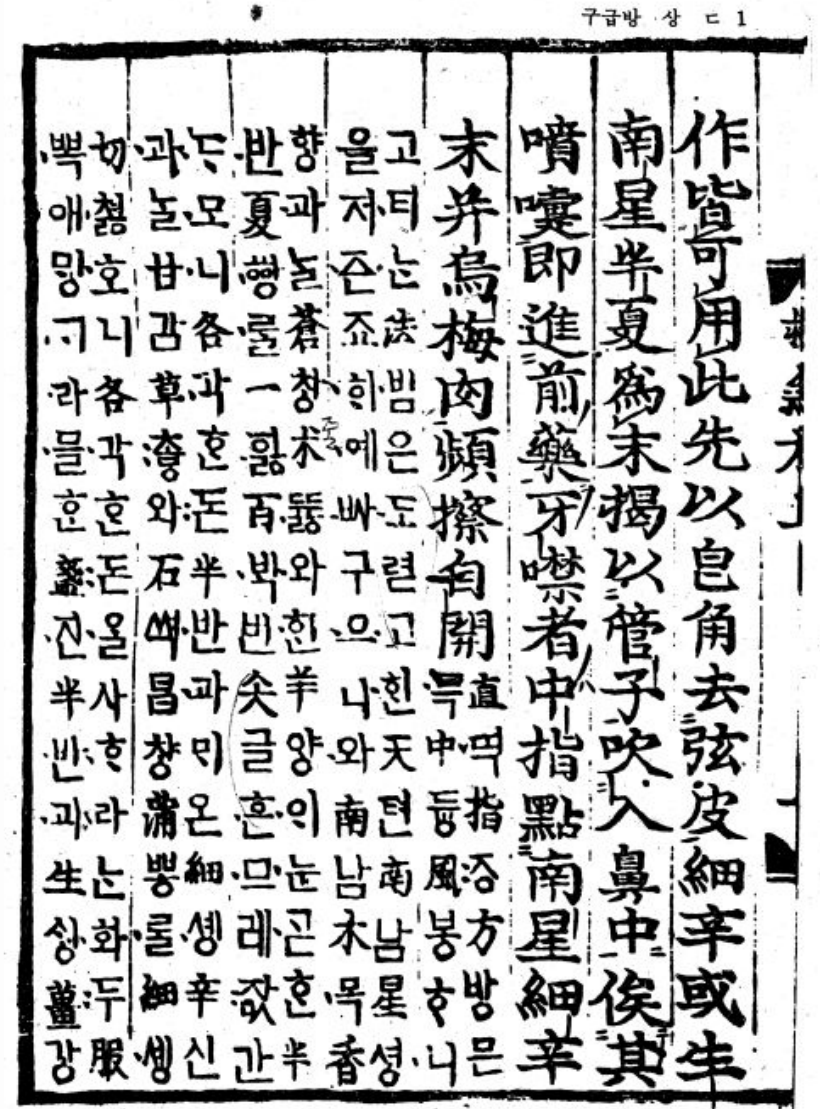 구급방 상 ㄷ 1
作皆可用此先以皀角去弦皮細辛或生
南星半夏爲末揭以管子吹入鼻中俟其
噴嚔即進前藥牙噤者中指點南星細辛
末并烏梅肉頻擦自開
直·띡指:징方방믄
·득中듕風봉ᄒᆞ·니
고·티·ᄂᆞᆫ法·법은도련고·힌天텬南남星셩
·을저·즌죠·ᄒᆡ·예·ᄡᅡ구·으·나·와南남木·목香
향·과·ᄂᆞᆯ蒼창术·뜛·와·힌羊양·의눈·곤ᄒᆞᆫ半
·반夏:ᅘᅡᆼ·ᄅᆞᆯ一·ᅙᅵᇙ百·ᄇᆡᆨ번·솟글·흔·므레:잢간
드·모·니各·각ᄒᆞᆫ:돈半·반·과·미온細·솅辛신
·과·ᄂᆞᆯ甘감草:초ᇢ·와石·쎡昌챵蒲뽕·ᄅᆞᆯ細·솅
切·쳟ᄒᆞ니各·각ᄒᆞᆫ:돈·ᄋᆞᆯ사·ᄒᆞ·라눈화:두服
·뽁·애ᄆᆡᇰ·ᄀᆞ·라·믈ᄒᆞᆫ盞:잔半·반·과生ᄉᆡᇰ薑강